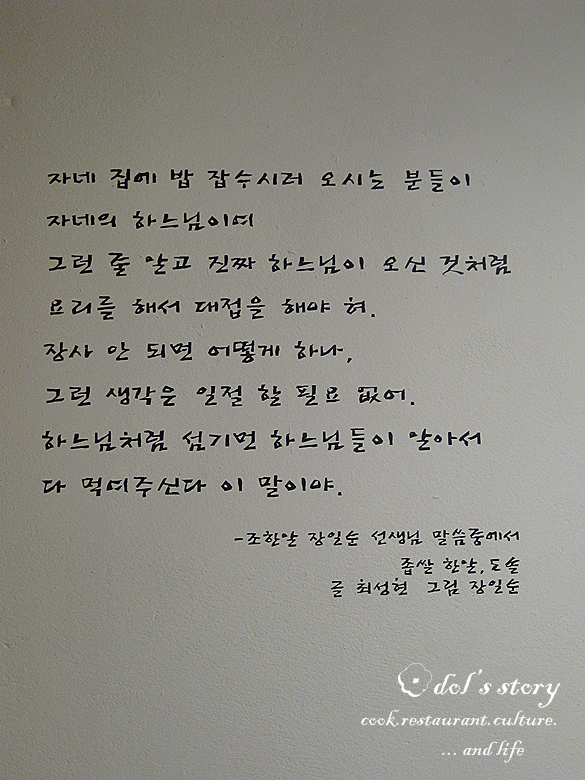 자네 집에 밥 잡수시러 오시는 분들이
자네의 하느님이여
그런 줄 알고 진짜 하느님이 오신 것처럼
요리를 해서 대접을 해야 혀.
장사 안 되면 어떻게 하나,
그런 생각은 일절 할 필요 없어.
하느님처럼 섬기면 하느님들이 알아서
다 먹여주신다 이 말이야.
-조한알 장일순 선생님 말씀중에서
좁쌀 한알, 도솔
글 최성현 그림 장일순
dol's story
cook.restaurant.culture.
... and life